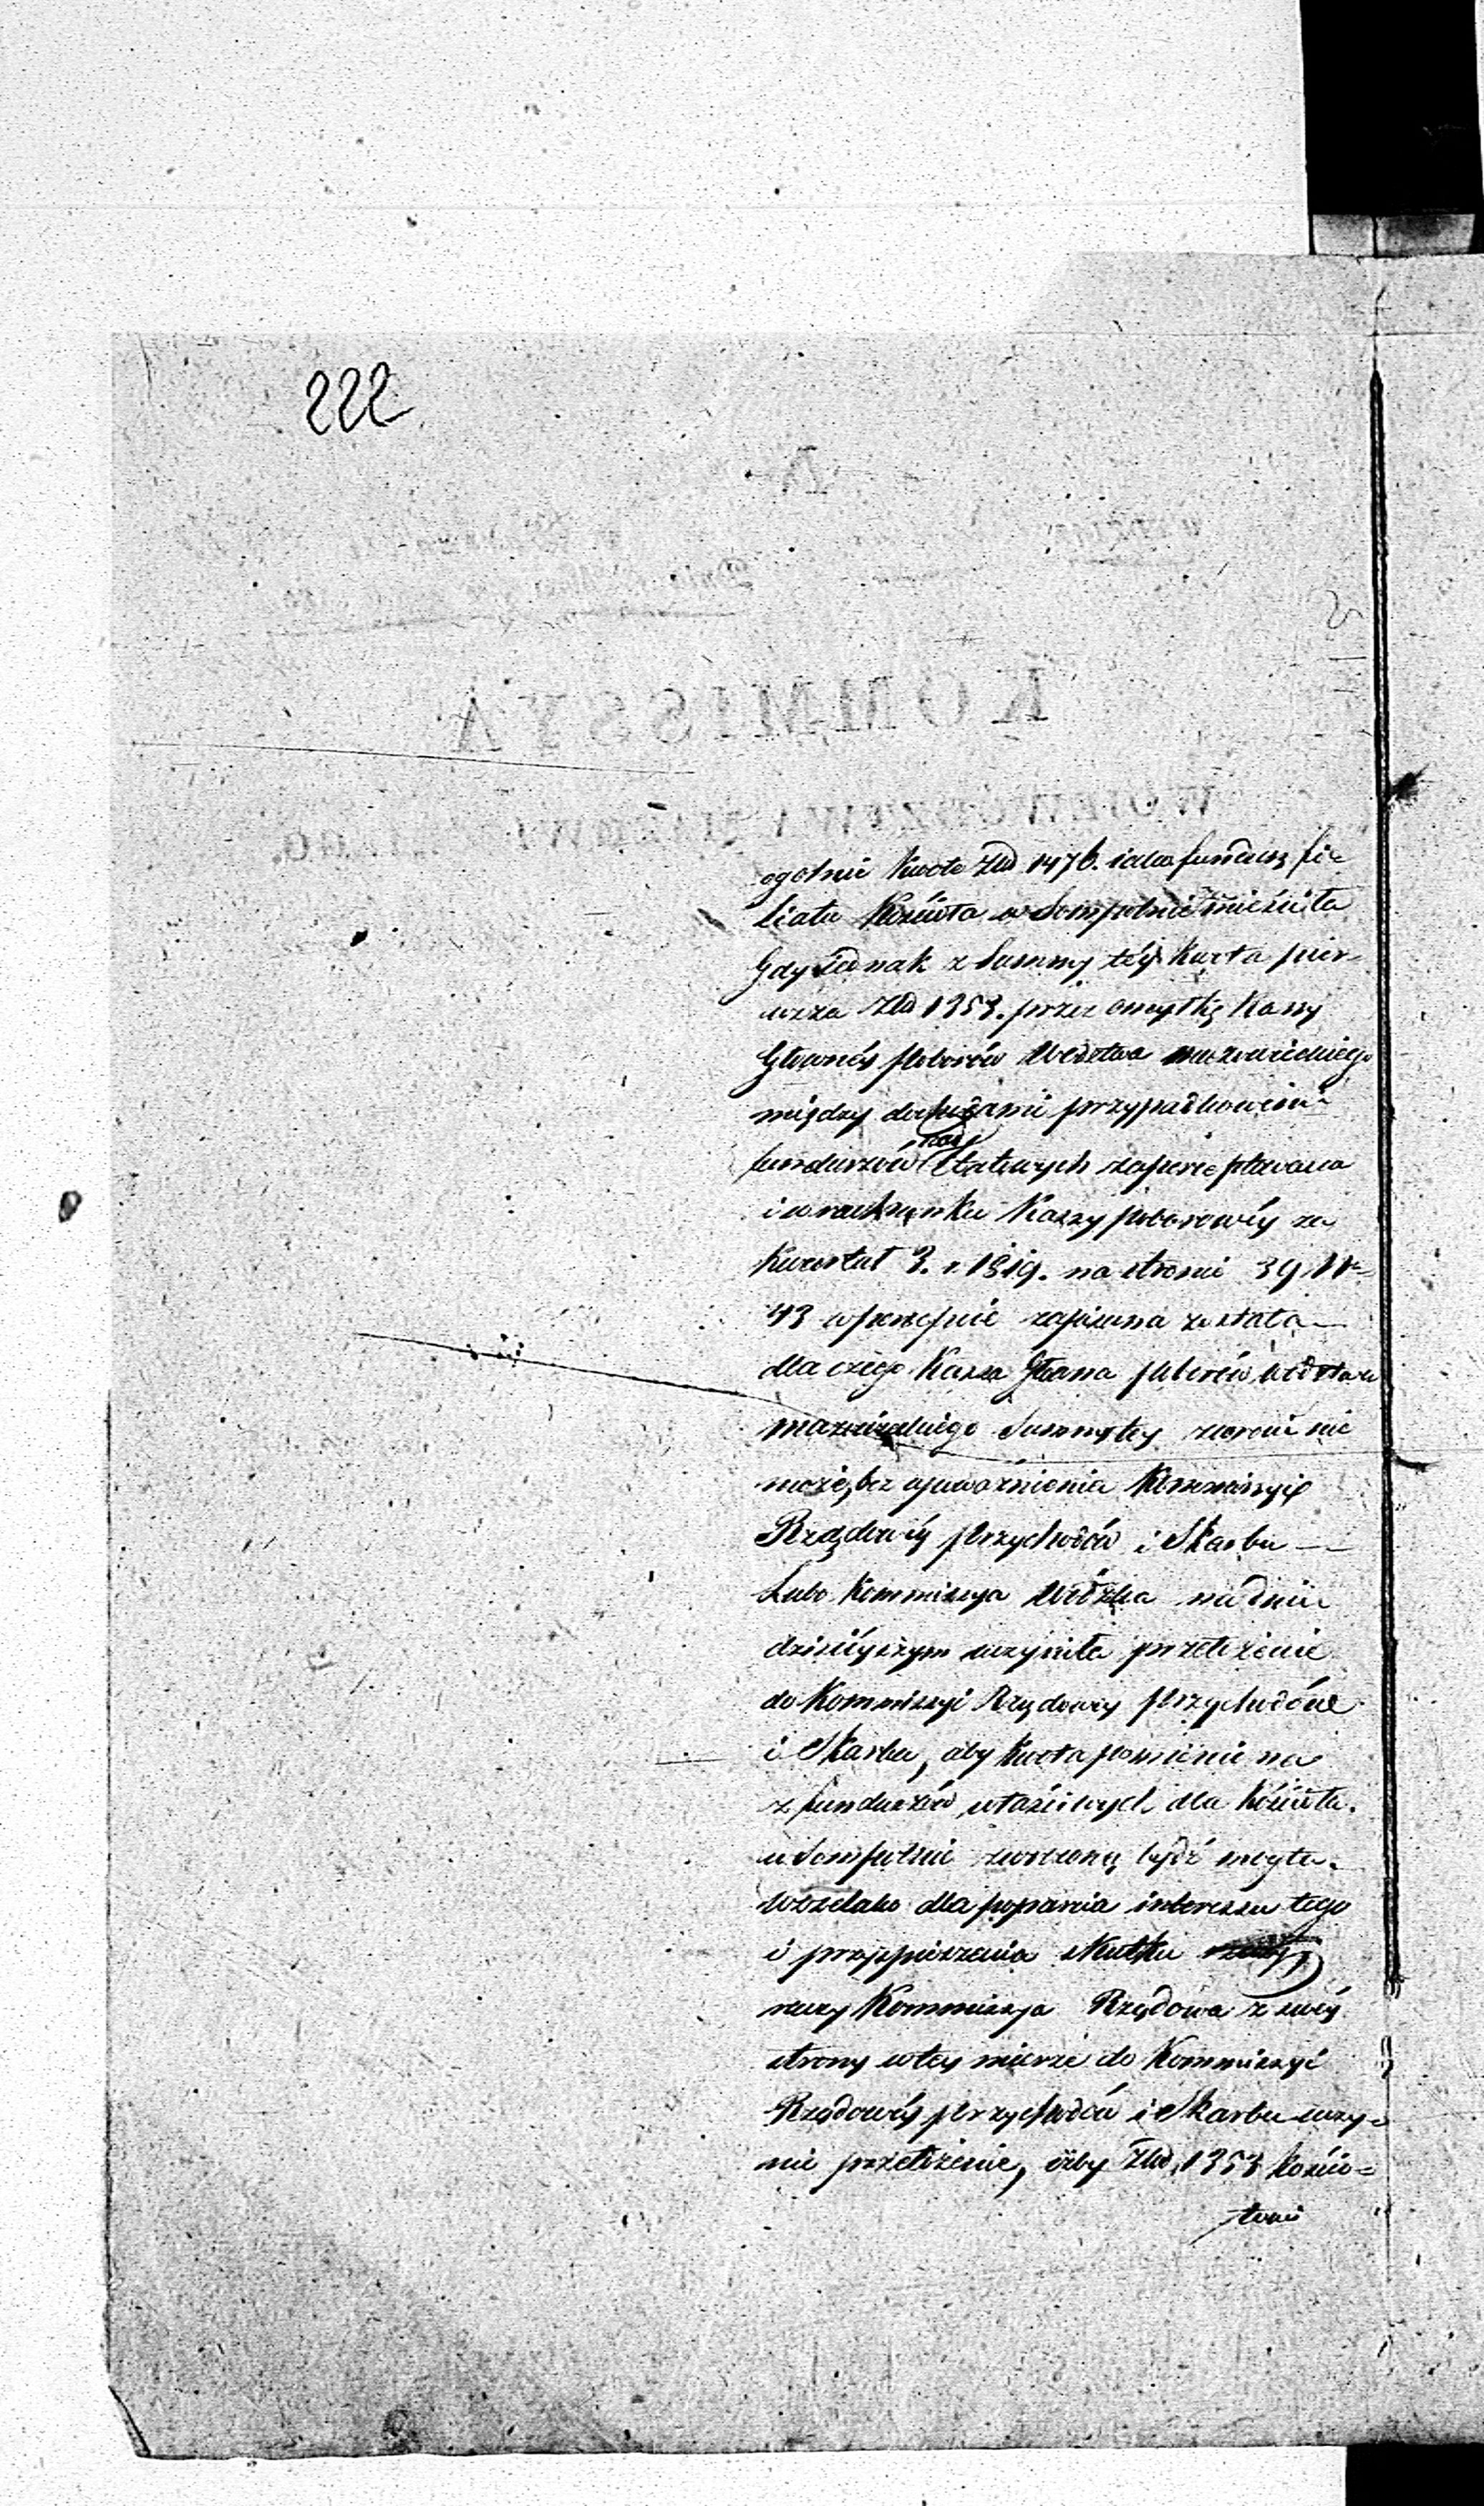 222
ogolnie kwotę Złp 1476. iako fundusz fi-
liału Kościoła w Sompolnie mieściła
Gdy iednak z Summy téy kwota pier-
wsza Złp 1353. przez omyłkę Kassy
Głównéy Poborów Wdztwa mazowieckiego
między dochodami przypadkowemi
funduszów Etatowych zaperceptowana
i w rachunku Kassy poborowéy za
kwartał 3. r. 1819. na stronie 39 Nr
43 w percepcie zapisana została —
dla czego Kassa Główna Poborów Wdztwa
mazowieckiego Summy tey zwrócić nie
może, bez upoważnienia Kommissyi
Rządowéy Przychodów i Skarbu —
Lubo Kommissya Wdzka na dniu
dzisieyszym uczyniła przełożenie
do Kommissyi Rządowéy Przychodów
i Skarbu, aby kwota pomieniona
z funduszów właściwych dla kościoła
w Sompolnie zwróconą bydź mogła.
Wszelako dla poparcia interessu tego
i przyspieszenia skutku
raczy Kommissya Rządowa z swéy
strony w tey mierze do Kommissyi
Rządowéy Przychodów i Skarbu uczy-
nić przełożenie, iżby Złp. 1353 kościo-
łowi
KOMMISSYA
WOIEWÓDZTWA MAZOWIECKIEGO.